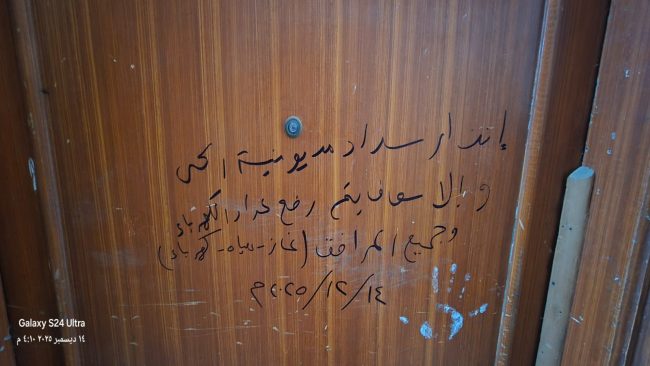 إنذار سداد مديونية الحى
وإلا سوف يتم رفع عداد الكهرباء
وجميع المرافق (غاز - مياه - كهرباء)
١٤/١٢/٢٠٢٥م
Galaxy S24 Ultra
١٤ ديسمبر ٢٠٢٥ ٤:١٠ م